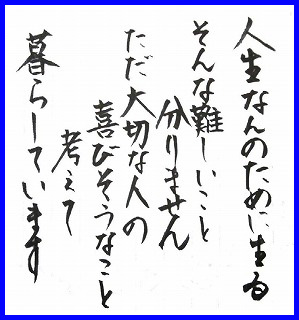 人生なんのために生る
そんな難しいこと
分りません
ただ大切な人の
喜びそうなこと
考えて
暮らしています